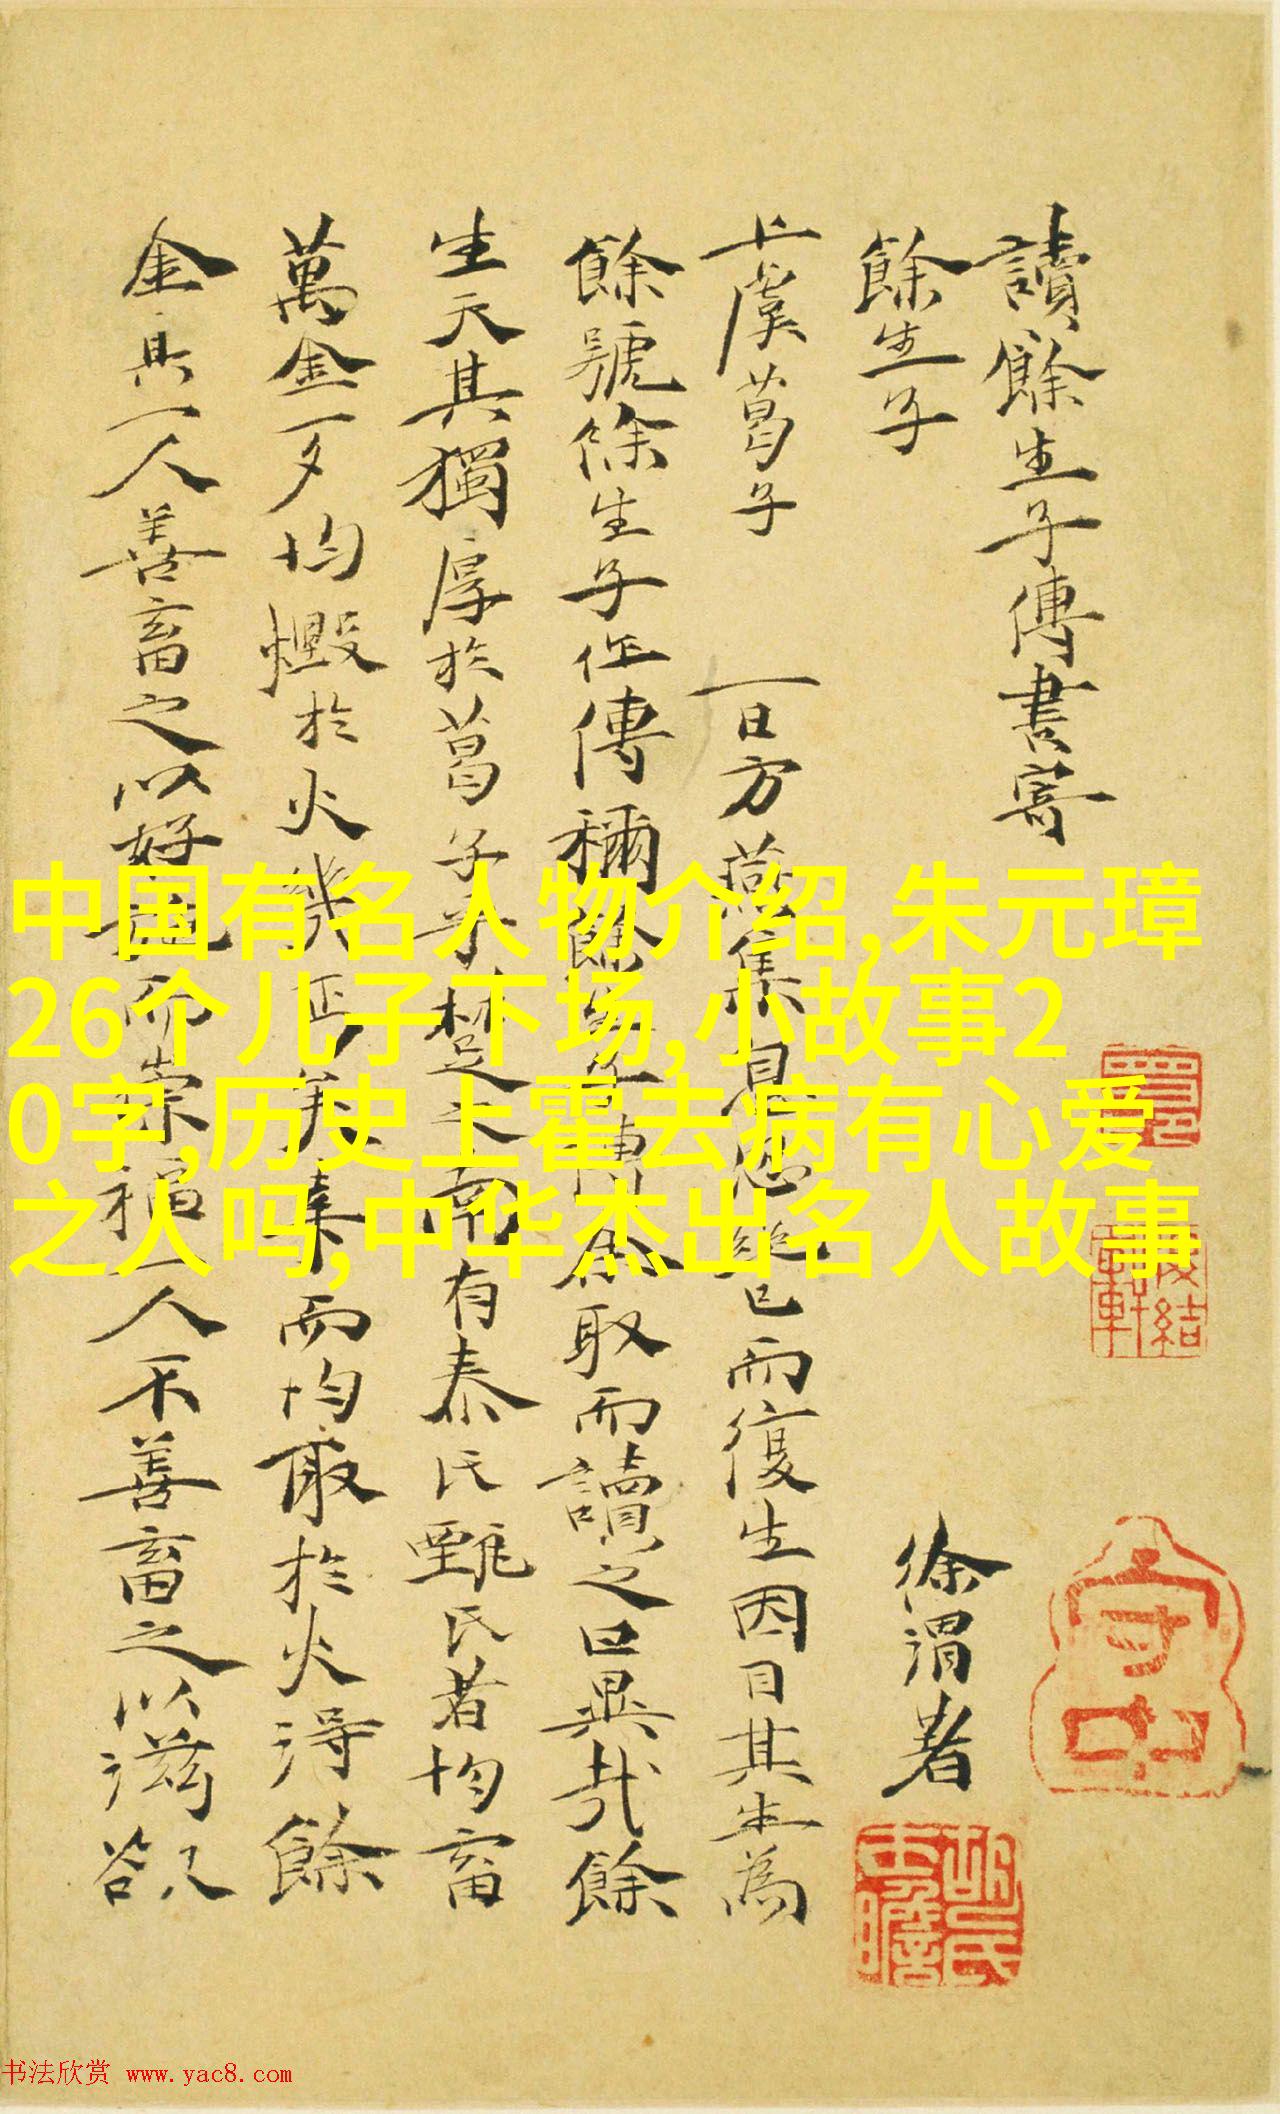 讀餘生子傳書寄
餘生子
徐渭著
上虞葛子 一日方燕集具 絕已而復生因目其生為
餘號餘生子作傳稱餘生子傳 余取而讀之曰異哉餘
生天其獨厚於葛子乎楚之南有秦氏甄氏者均畜
萬金一夕均燬於火幾 美 而均取於火得餘
金具一人善畜之以好 而崇福一人不善畜之以滋欲
中国有名人物介绍,朱元璋
26个儿子下场,小故事2
0字,历史上霍去病有心爱
之人吗,中华杰出名人故事
守中
书法欣赏 www.yac8.com